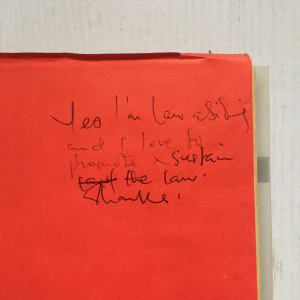 Yes I'm law abiding
and I love to
promote & sustain
the law.
Thanks.